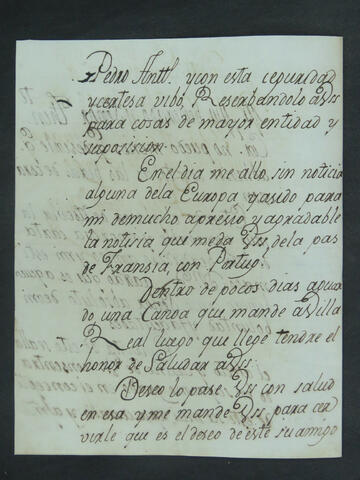 Pedro Antt.º y con esta ceguridad
y certesa vibo, Reserbandolo a VSS
para cosas de mayor entidad y
suposision.
En el dia me allo, sin noticia
alguna de la Europa y asido para
mi de mucho apresio, y agradable
la notisia que me da VSS, de la pas
de Fransia, con Portug.l
Dentro de pocos dias aguar
do una Canoa que mande a Villa
Real luego que llege tendre el
honor de Saludar a VSS.
Deseo lo pase VSS con salud
en esa, y me mande VSS para cer
virle que es el deseo de este su amigo